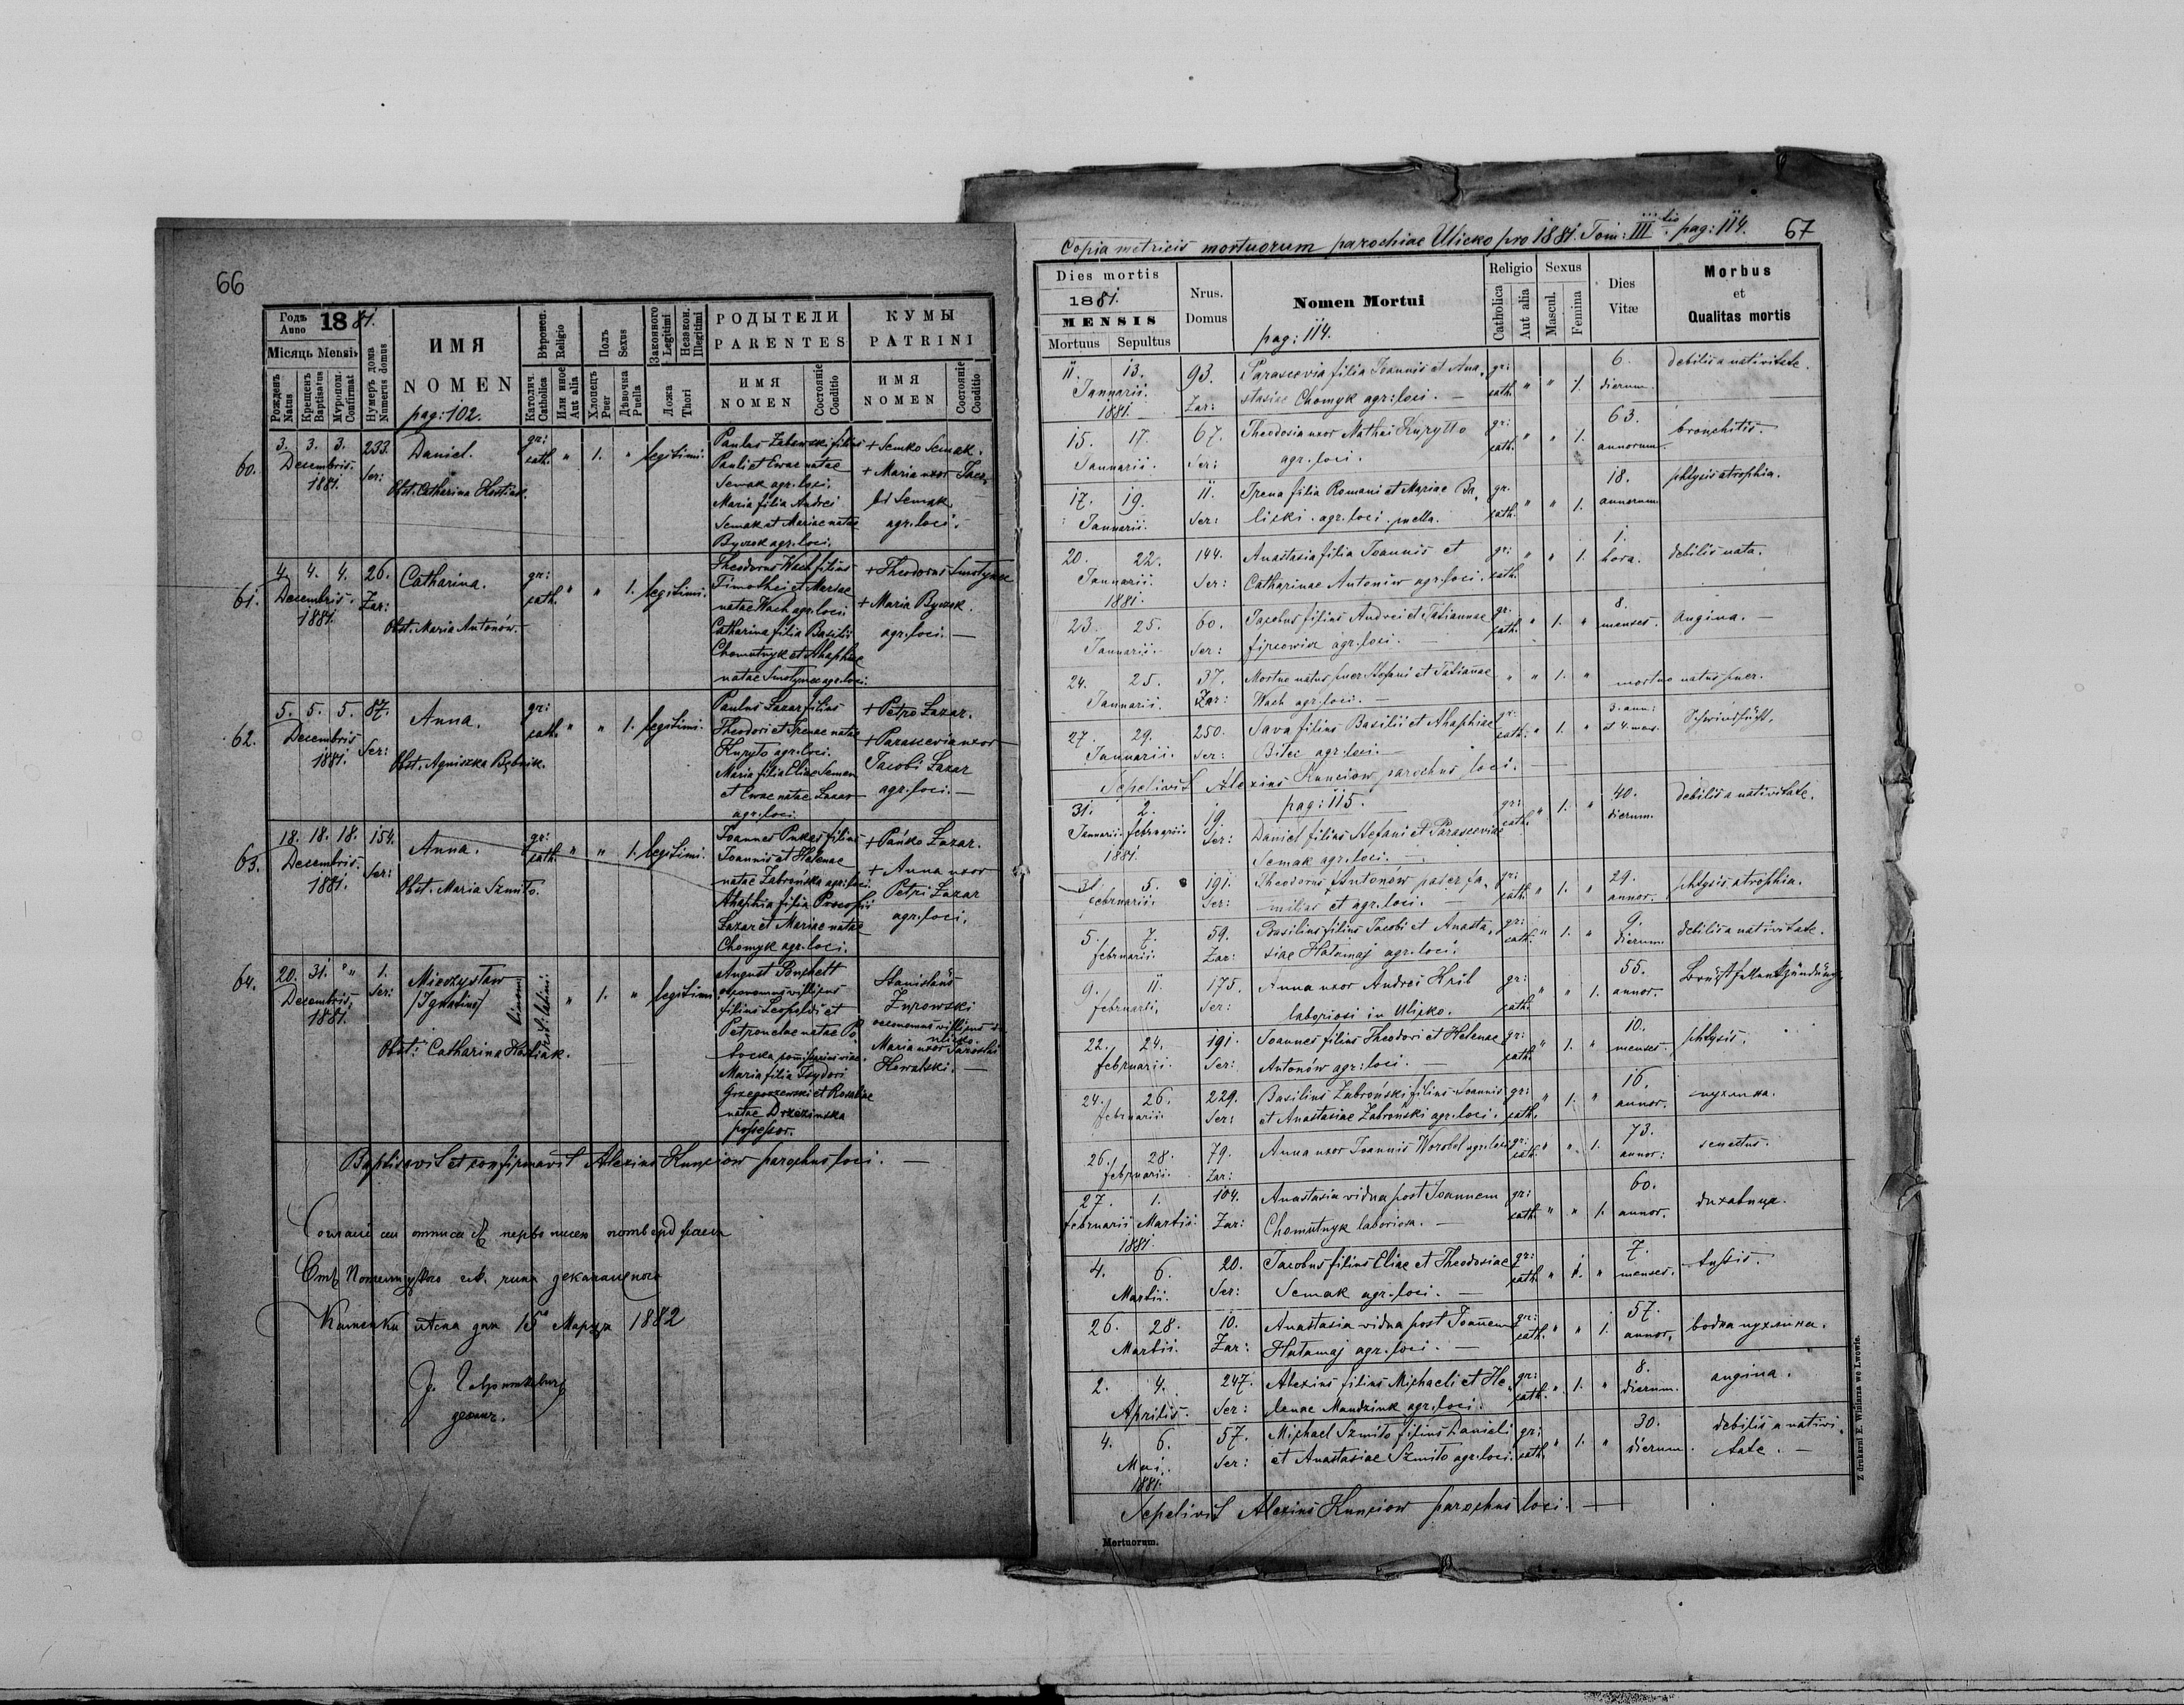 66
Годъ Anno 1881.
Місяць Mensis
Рожденъ Natus
Крещенъ Baptisatus
Мѵропом. Confirmat
Нумеръ дома Numerus domus
ИМЯ
NOMEN
pag: 102.
Вѣроисп. Religio
Католич. Catholica
Или иное Aut alia
Полъ Sexus
Хлопецъ Puer
Дѣвочка Puella
Законного Legitimi
Незакон. Illegitimi
Ложа Thori
РОДЫТЕЛИ
PARENTES
ИМЯ
NOMEN
Состояніе
Conditio
КУМЫ
PATRINI
ИМЯ
NOMEN
Состояніе
Conditio
60. 3. 3. 3. 233. Daniel. gr: cath. " 1. " legitimi.
Decembris 1881. Ser:
Obst. Catharina Hostiak.
Paulus Zabawski filius
Pauli et Evae natae
Semak agr. loci.
Maria filia Andrei
Semak et Mariae natae
Byczek agr. loci.
+ Semko Semak.
+ Maria uxor Jaco,
bi Semak
agr. loci.
61. 4. 4. 4. 26. Catharina. gr: cath. " " 1. legitimi.
Decembris 1881. Zar:
Obst. Maria Antonów.
Theodorus Wach filius
Timothei et Mariae
natae Wach agr. loci
Catharina filia Basilii
Chomutnyk et Ahaphiae
natae Smotynec agr. loci.
+ Theodorus Smotynec
+ Maria Byczek.
agr. loci. —
62. 5. 5. 5. 87. Anna. gr: cath. " " 1. legitimi.
Decembris 1881. Ser:
Obst. Agniszka Bębnik.
Paulus Łazar filius
Theodori et Irenae natae
Kuryło agr. loci.
Maria filia Eliae Seman
et Evae natae Łazar
agr. loci.
+ Petro Łazar.
+ Parascevia uxor
Jacobi Łazar
agr. loci. —
63. 18. 18. 18. 154. Anna. gr: cath. " " 1. legitimi.
Decembris 1881. Ser:
Obst. Maria Szmiło.
Joannes Pukas filius
Joannis et Helenae
natae Zabrońska agr. loci
Ahaphia filia Procopii
Łazar et Mariae natae
Chomyk agr. loci.
+ Pańko Łazar.
+ Anna uxor
Petri Łazar
agr. loci.
64. 20. 31. " " 1. Mieczysław " 1. " legitimi
Decembris 1881. Ser:
/Ignatius/
Obst: Catharina Hostiak.
August
oeconomus
filius Leopoldi et
Petronelae natae
Maria filia Isydori
Grzegorzewski et Rosaliae
natae Drzezinska
possessor.
Stanislaus
Żurowski
oeconomus
Maria uxor
Kowalski. —
Baptisavit et confirmavit Alexius Kunciow parochus loci. —
15 Марца 1882
Copia metricis mortuorum parochiae Ulicko pro 1881. Tom: III tio. pag: 114.
67
Dies mortis
1881.
MENSIS
Mortuus
Sepultus
Nrus.
Domus
Nomen Mortui
pag: 114.
Religio
Catholica
Aut alia
Sexus
Mascul.
Femina
Dies
Vitæ
Morbus
et
Qualitas mortis
11. 13. Januarii. 1881. 93. Zar: Parascevia filia Joannis et Ana,
stasiae Chomyk agr: loci. — gr: cath. " " 1. 6. dierum. debilis a nativitate.
15. 17. Januarii. 67. Ser: Theodosia uxor Mathei Kuryłło
agr. loci. gr: cath. " " 1. 63. annorum. bronchitis.
17. 19. Januarii. 11. Ser: Irena filia Romani et Mariae Ba,
licki. agr. loci. puella. gr. cath. " " 1. 18. annorum. phtysis atrophia.
20. 22. Januarii. 1881. 144. Ser: Anastasia filia Joannis et
Catharinae Antoniw agr. loci. gr: cath. " " 1. 1. hora. debilis nata.
23. 25. Januarii. 60. Ser: Jacobus filius Andrei et Tatiannae
agr. loci. gr: cath. " 1. " 8. menses. angina. —
24. 25. Januarii. 37. Zar: Mortuo natus puer Stefani et Tatianae
Wach agr. loci. — " " 1. " mortuo natus puer.
27. 29. Januarii. 250. Ser: Sava filius Basilii et Ahaphiae
Bilec agr. loci. — gr: cath. " 1. " 3. ann: et 4. mens.
Sepelivit Alexius Kunciow parochus loci. —
pag: 115.
31. Januarii. 2. februarii. 1881. 19. Ser: Daniel filius Stefani et Parasceviae
Semak agr. loci. — gr: cath. " 1. " 40. dierum. debilis a nativitate.
5. februarii. 191. Ser: Theodorus Antonów pater fa,
milias et agr. loci. — gr: cath. " 1. " 29. annor. phtysis atrophia.
5. 7. februarii. 59. Zar: Basilius filius Jacobi et Anasta,
siae Hałamaj agr. loci. gr: cath. " 1. " 9. dierum. debilis a nativitate.
9. 11. februarii. 175. Ser: Anna uxor Andrei Hrib
laboriosi in Ulicko. gr: cath. " " 1. 55. annor.
22. 24. februarii. 191. Ser: Joannes filius Theodori et Helenae
Antonów agr: loci. — gr: cath. " 1. " 10. menses. phtysis.
24. 26. februarii. 229. Ser: Basilius Zabroński filius Joannis
et Anastasiae Zabroński agr. loci. gr: cath. " 1. " 16. annor. пухлина.
26. 28. februarii. 79. Zar: Anna uxor Joannis Worobel agr. loci gr: cath. " " 1. 73. annor: senectus.
27. februarii 1. Martii. 1881. 104. Zar: Anastasia vidua post Joannem
Chomutnyk laboriosa. — gr: cath. " " 1. 60. annor. дихавица.
4. 6. Martii. 20. Ser: Jacobus filius Eliae et Theodosiae
Semak agr. loci. — gr: cath. " 1. " 7. menses. tussis.
26. 28. Martii. 10. Zar: Anastasia vidua post Joannem
Hałamaj agr. loci. — gr: cath. " " 1. 57. annor. водна пухлина.
2. 4. Aprilis. 247. Ser: Alexius filius Michaeli et He,
lenae Mandziuk agr. loci. gr: cath. " 1. " 8. dierum. angina.
4. 6. Mai. 1881. 57. Ser: Michael Szmiło filius Danieli
et Anastasiae Szmiło agr. loci. gr: cath. " 1. " 30. dierum. debilis a nativi,
tate. —
Sepelivit Alexius Kunciow parochus loci. —
Mortuorum.
Z drukarni E. Winiarza we Lwowie.